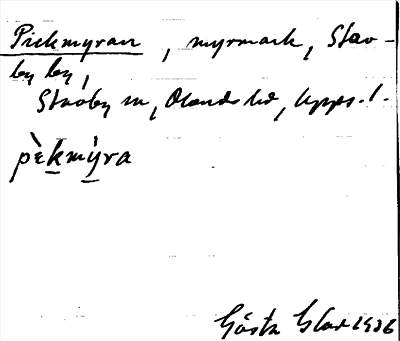 Pickmyran, myrmark, Stav-
by by,
Stavby sn, Olands hd, Upps. l.
pèkmy̠ra
Gösta 1936